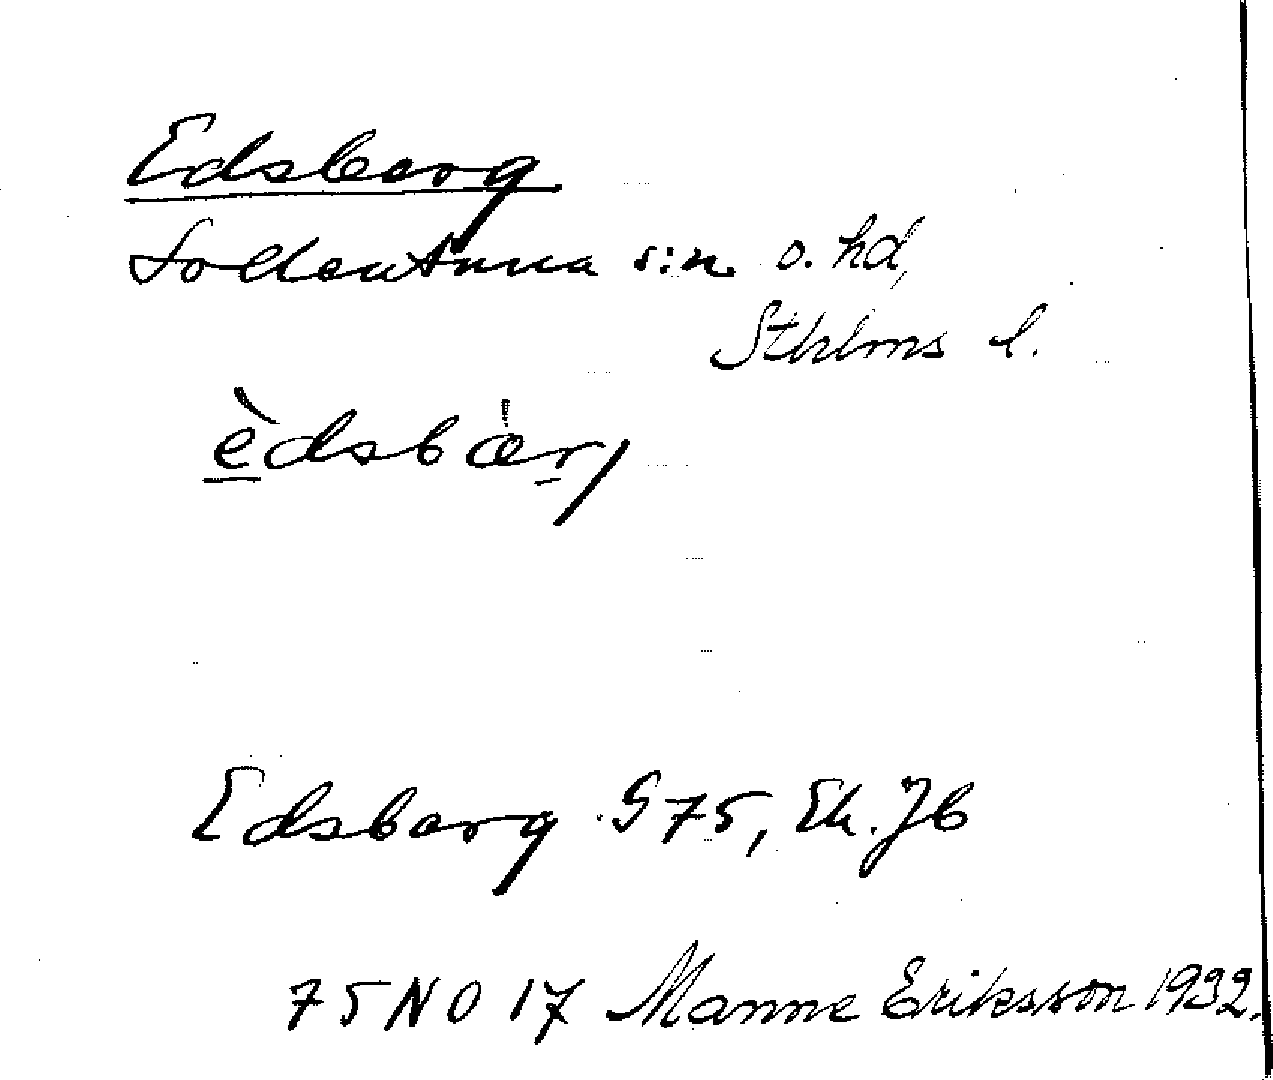 Edsberg
Sollentuna s:n o. hd,
Sthlms l.
èdsbä̀rj
Edsberg G 75, Ek. Jb
75 NO 17 Manne Eriksson 1932.